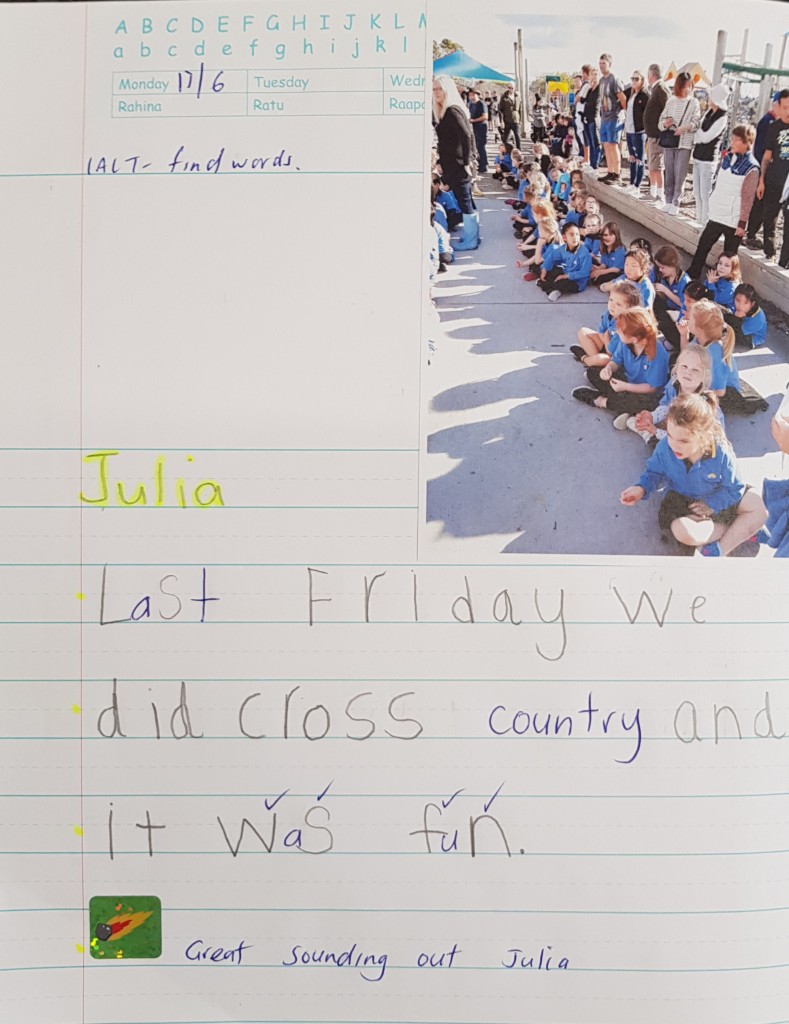 A B C D E F G H I J K L
a b c d e f g h i j k l
Monday 17/6 Tuesday Wedr
Rahina Ratu Raapa
IALT- find words.
Julia
Last Friday we
did cross country and
it was fun.
Great sounding out Julia